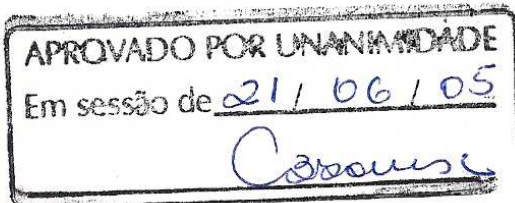 APROVADO POR UNANIMIDADE
Em sessão de 21 / 06 / 05